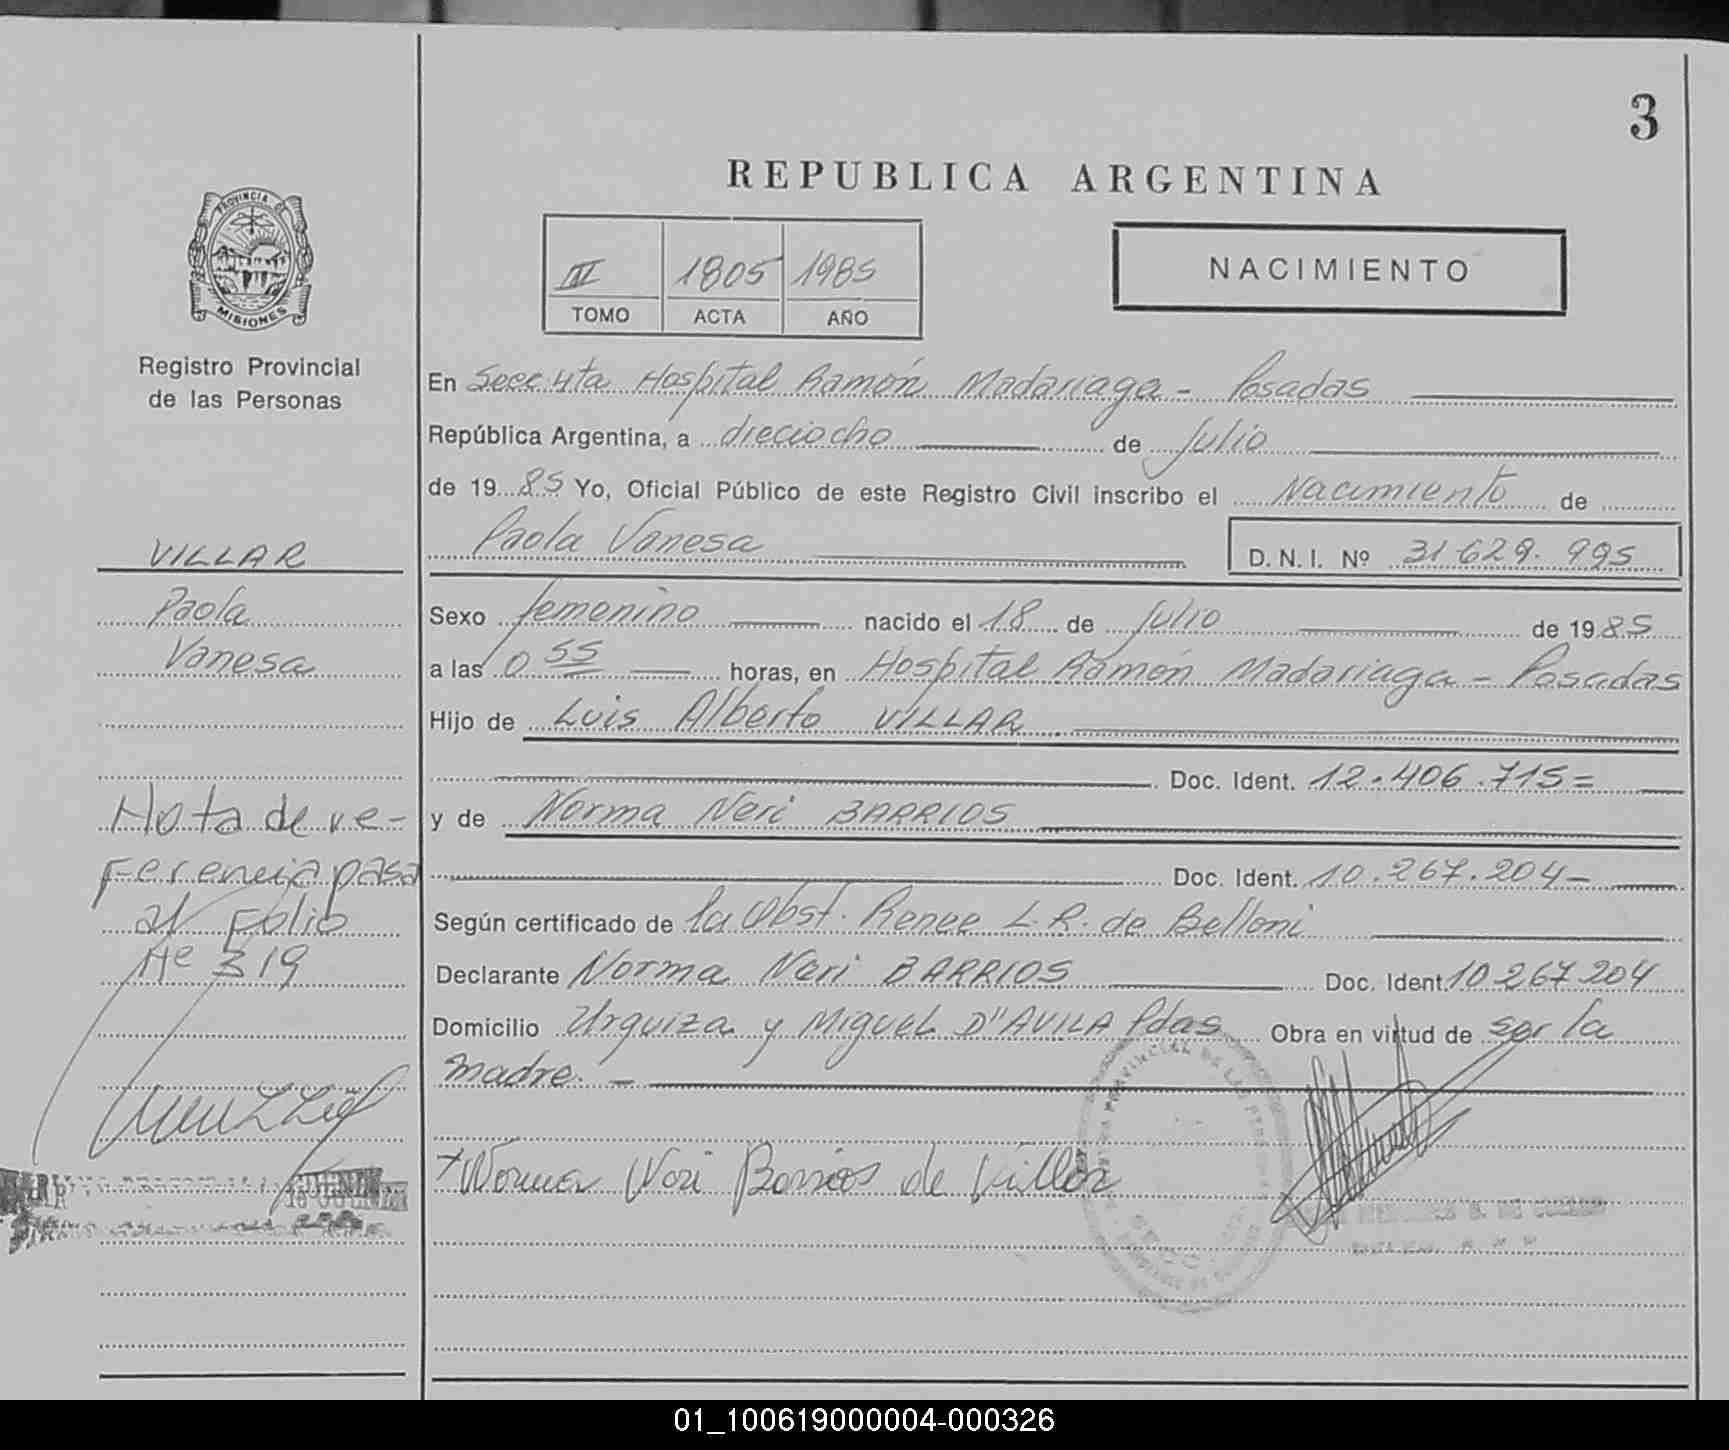 3
REPUBLICA ARGENTINA
PROVINCIA DE
MISIONES
Registro Provincial
de las Personas
III 1805 1985
TOMO ACTA AÑO
NACIMIENTO
En Secc 4ta Hospital Ramón Madariaga - Posadas
República Argentina, a dieciocho de Julio
de 1985 Yo, Oficial Público de este Registro Civil inscribo el Nacimiento de
Paola Vanesa D. N. I. Nº 31.629.995
VILLAR
Paola
Vanesa
Sexo femenino nacido el 18 de Julio de 1985
a las 0 55 horas, en Hospital Ramón Madariaga - Posadas
Hijo de Luis Alberto VILLAR
Doc. Ident. 12.406.715=
y de Norma Neri BARRIOS
Doc. Ident. 10.267.204-
Según certificado de la Obst. Renee L.R. de Belloni
Declarante Norma Neri BARRIOS Doc. Ident. 10 267 204
Domicilio Urquiza y Miguel D"AVILA Pdas Obra en virtud de ser la
madre. -
Nota de re-
ferencia pasa
al Folio
Nº 319
Norma Neri Barrios de Villar
01_100619000004-000326